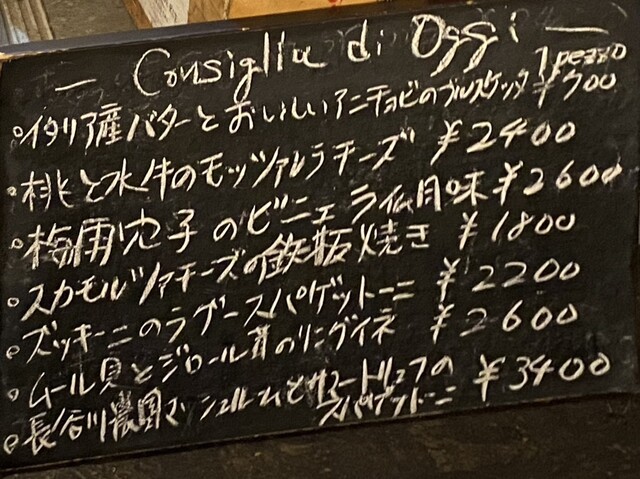 — Consiglia di Oggi —
・イタリア産バターとおいしいアンチョビのブルスケッタ 1 pezzo ¥700
・桃と水牛のモッツァレラチーズ ¥2400
・梅雨穴子のビニェ ライム風味 ¥2600
・スカモルツァチーズの鉄板焼き ¥1800
・ズッキーニのラグースパゲットーニ ¥2200
・ムール貝とジロール茸のリングイネ ¥2600
・長谷川農園マッシュルームとサマートリュフの ¥3400
スパゲットーニ